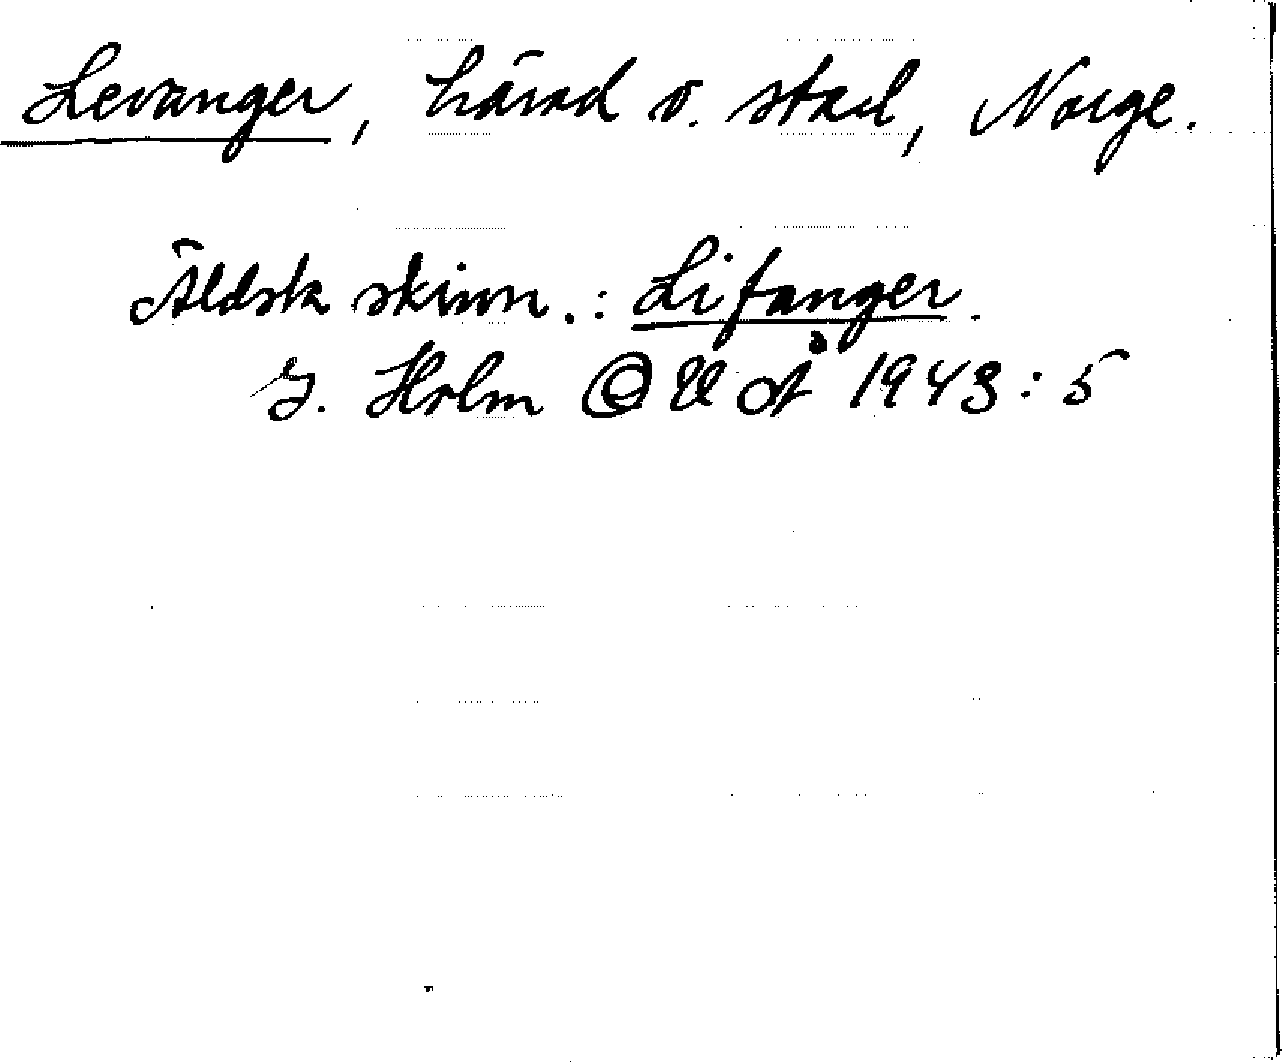 Levanger, härad o. stad, Norge.
Äldsta skivn.: Lifanger.
G. Holm i UUÅ 1943:5